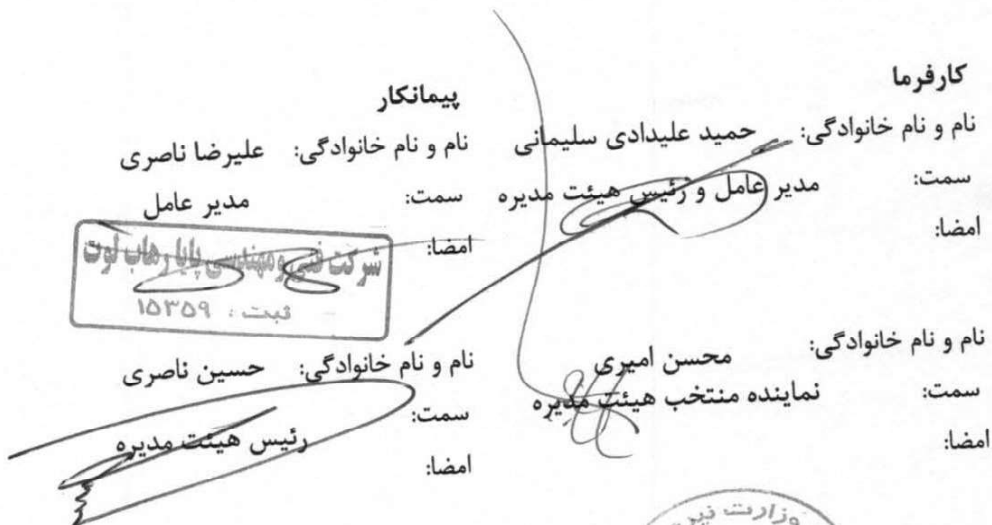 کارفرما
نام و نام خانوادگی: حمید علیدادی سلیمانی
سمت: مدیر عامل و رئیس هیئت مدیره
امضا:
نام و نام خانوادگی: محسن امیری
سمت: نماینده منتخب هیئت مدیره
امضا:
وزارت
پیمانکار
نام و نام خانوادگی: علیرضا ناصری
سمت: مدیر عامل
امضا:
شرکت فنی و مهندسی پایا رهاب لوت
ثبت : ۱۵۳۵۹
نام و نام خانوادگی: حسین ناصری
سمت: رئیس هیئت مدیره
امضا: